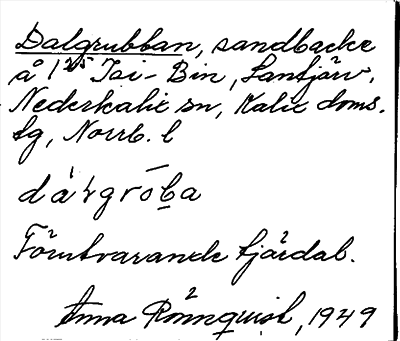 Dalgrubban, sandbacke
å 1²⁵ Tai-Bin, Sanfjärv,
Nederkalix sn, Kalix doms.
tg, Norrb. l
Försvarande fjärdal.
Anna Rönnquist, 1949